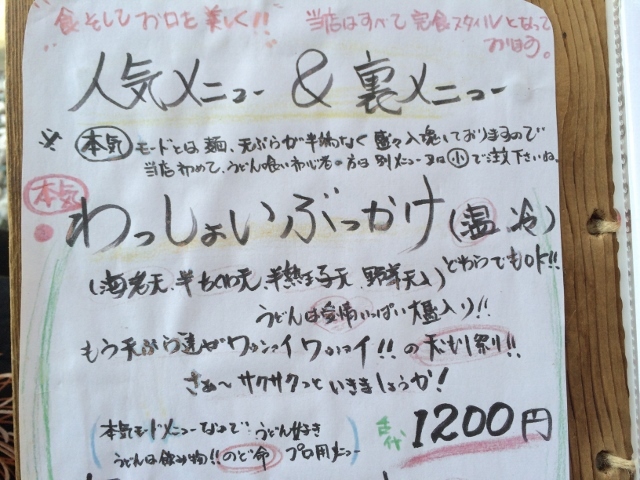 食そしてお口を美しく!!
当店はすべて完食スタイルとなって
おります。
人気メニュー & 裏メニュー
※ 本気 モードとは、麺、天ぷらが半端なく盛々入魂しておりますので
当店初めて、うどん喰い初心者の方は別メニュー又は小でご注文下さいね。
本気
わっしょいぶっかけ(温 冷)
(海老天、半ちくわ天、半熟玉子天、野菜天ム)どちらでもOK!!
うどんは愛情いっぱい大盛入り!!
もう天ぷら達がワッショイワッショイ!!の天もり祭り!!
さぁ〜サクサクっといきましょうか!
(本気モードメニューなので うどん好き
うどんは飲み物!!のど命 プロ用メニュー)
1200円